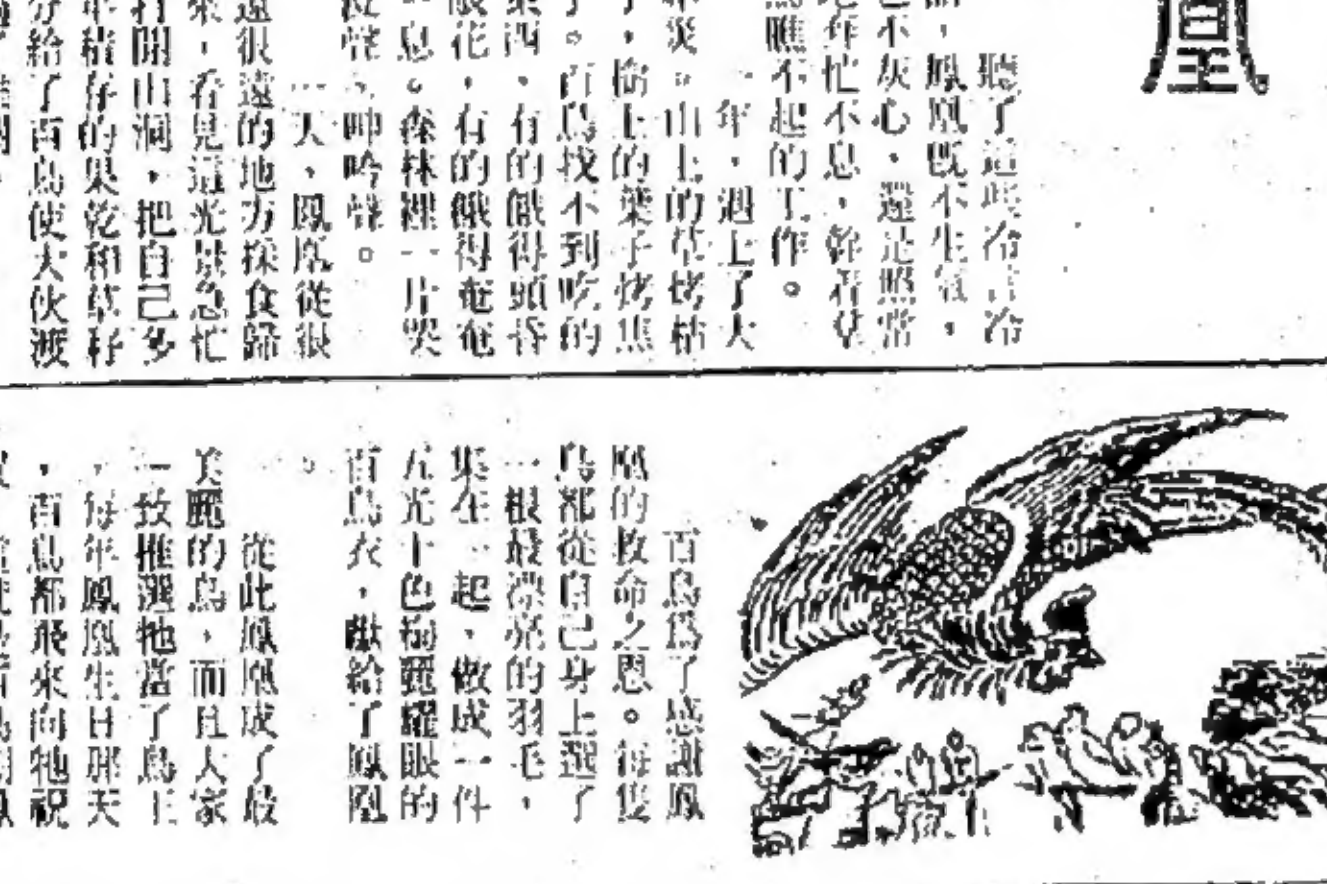 凰
聽了這些冷言冷
,鳳凰既不生氣,
不灰心,還是照常
作忙不息,幹着
瞧不起的工作。
一年,遇上了大
災。山上的草烤枯
,樹上的葉子烤焦
。百鳥找不到吃的
東西,有的餓得頭昏
眼花,有的餓得奄奄
一息。森林裡一片哭
聲、呻吟聲。
一天,鳳凰從很
遠很遠的地方採食歸
來,看見這光景急忙
打開山洞,把自己多
年積存的果乾和草籽
分給了百鳥使大伙渡
百鳥爲了感謝鳳
凰的救命之恩。每隻
鳥都從自己身上選了
一根最漂亮的羽毛,
集在一起,做成一件
五光十色絢麗耀眼的
百鳥衣,獻給了鳳凰
。
從此鳳凰成了最
美麗的鳥,而且大家
一致推選牠當了鳥王
,每年鳳凰生日那天
,百鳥都飛來向牠祝